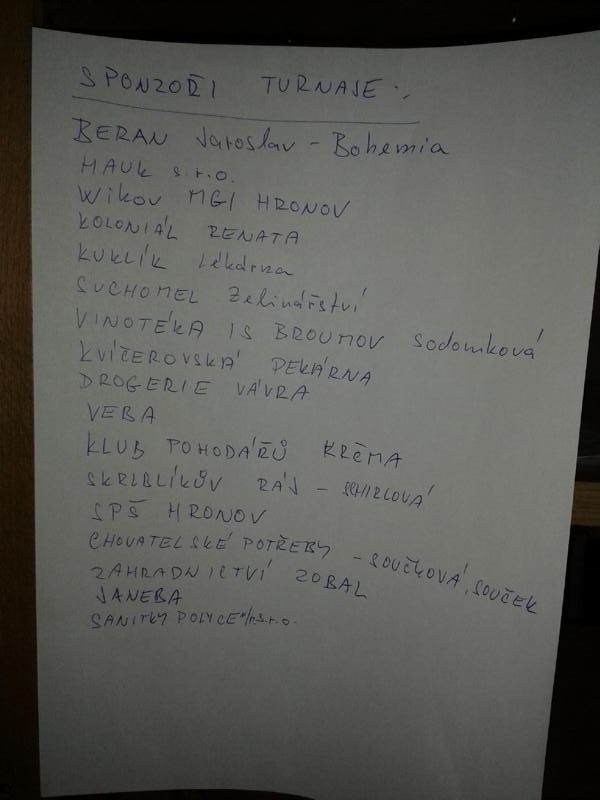 SPONZOŘI TURNAJE:
BERAN Jaroslav - Bohemia
HAUK s.r.o.
Wikov MGI HRONOV
KOLONIÁL RENATA
KUKLÍK lékárna
SUCHOMEL Zelinářství
VINOTÉKA IS BROUMOV Sodomková
KVÍČEROVSKÁ PEKÁRNA
DROGERIE VÁVRA
VEBA
KLUB POHODÁŘŮ KRČMA
SKRBLÍKŮV RÁJ - SCHIRLOVÁ
SPŠ HRONOV
CHOVATELSKÉ POTŘEBY - SOUČKOVÁ, SOUČEK
ZAHRADNICTVÍ ZOBAL
JANEBA
SANITKY POLICE n/M s.r.o.